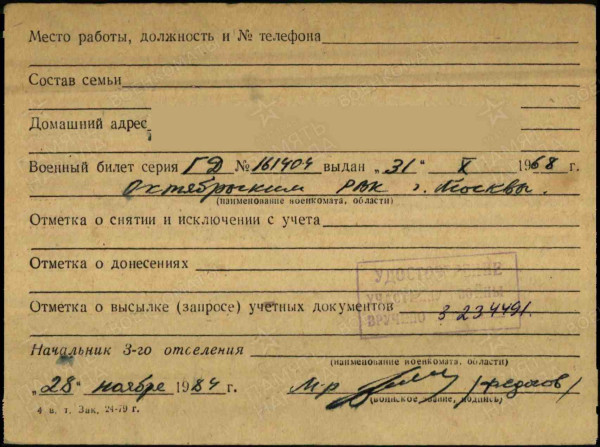 Место работы, должность и № телефона
Состав семьи
Домашний адрес
Военный билет серия ГД № 161404 выдан „31“ X 1968 г.
Октябрьским РВК г. Москвы.
(наименование военкомата, области)
Отметка о снятии и исключении с учета
Отметка о донесениях
УДОСТОВЕРЕНИЕ
УЧАСТНИКА ВОЙНЫ
ВРУЧЕНО 3 234491.
Отметка о высылке (запросе) учетных документов
Начальник 3-го отселения
(наименование военкомата, области)
„28“ ноября 1984 г. М-р
(воинское звание, подпись)
4 в. т. Зак. 24-79 г.